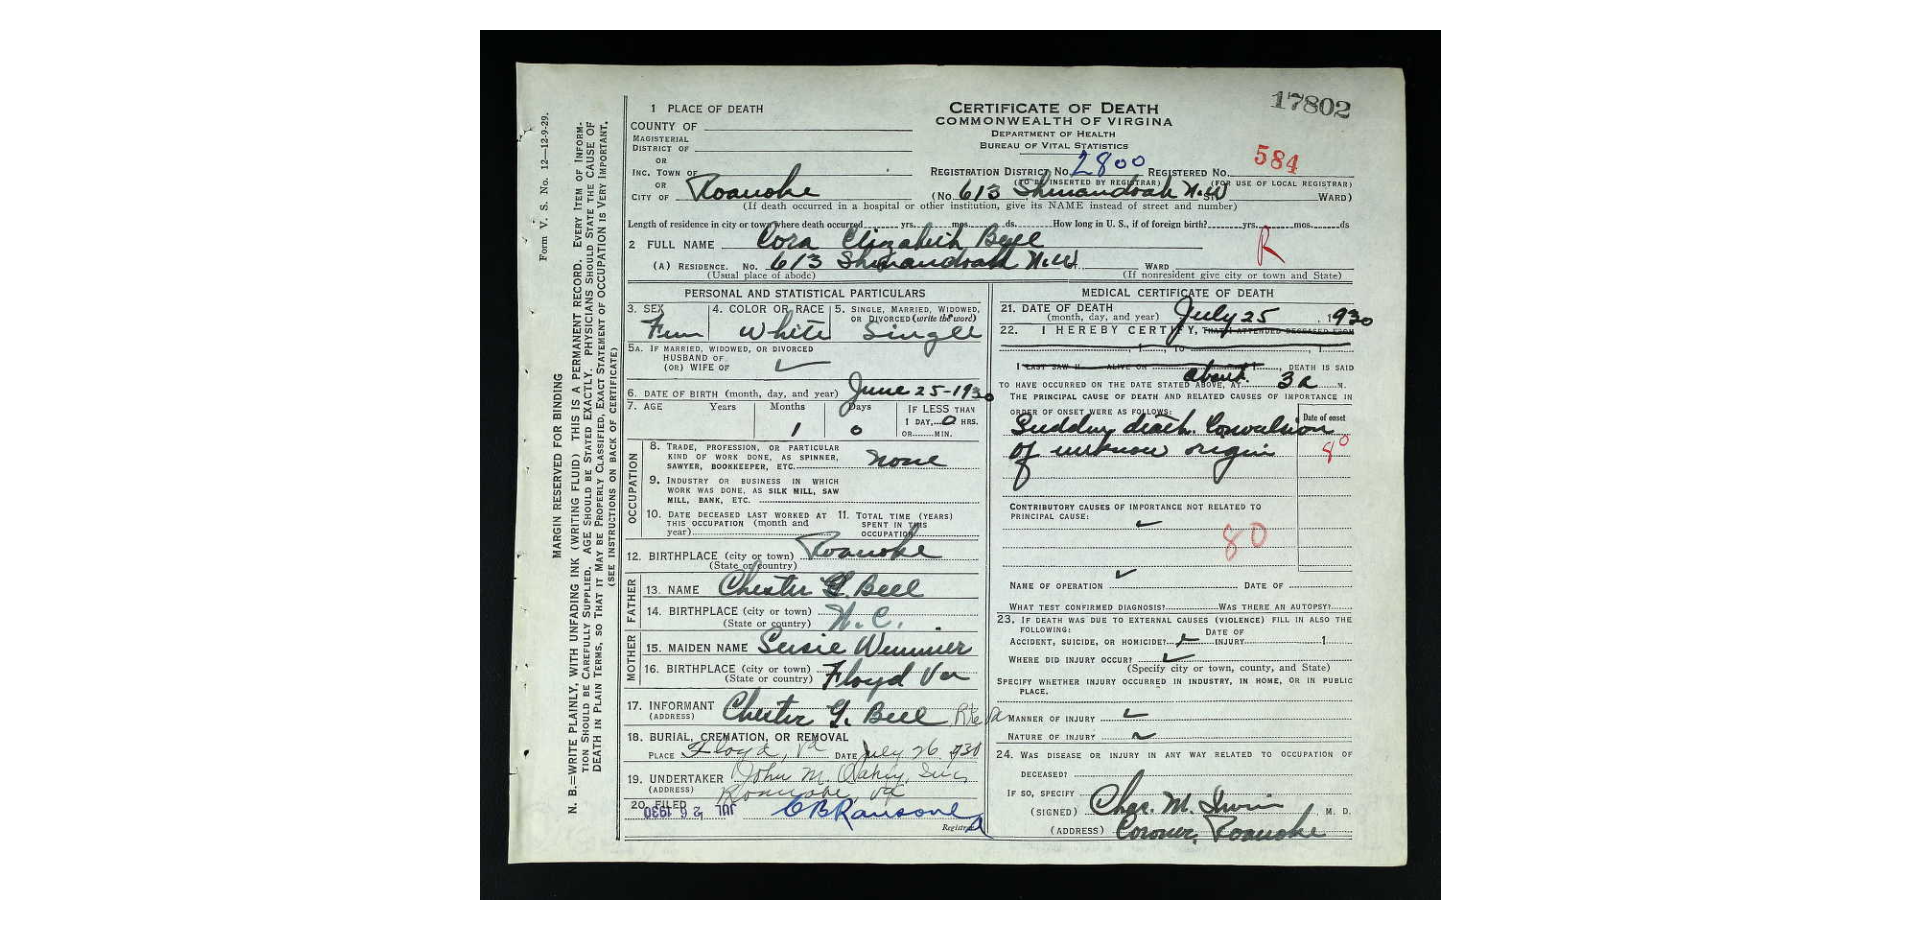 17802
1 PLACE OF DEATH
CERTIFICATE OF DEATH
COMMONWEALTH OF VIRGINIA
DEPARTMENT OF HEALTH
BUREAU OF VITAL STATISTICS
COUNTY OF
MAGISTERIAL
DISTRICT OF
OR
INC. TOWN OF
OR
CITY OF Roanoke
REGISTRATION DISTRICT No. 2800 REGISTERED No. 584
(TO BE INSERTED BY REGISTRAR) (FOR USE OF LOCAL REGISTRAR)
(No. 613 Shenandoah N.W ST. WARD)
(If death occurred in a hospital or other institution, give its NAME instead of street and number)
Length of residence in city or town where death occurred yrs. mos. ds. How long in U. S., if of foreign birth? yrs. mos. ds
2 FULL NAME Cora Elizabeth Bell
R
(A) RESIDENCE. No. 613 Shenandoah N.W. WARD
(Usual place of abode) (If nonresident give city or town and State)
PERSONAL AND STATISTICAL PARTICULARS
3. SEX Fem
4. COLOR OR RACE White
5. SINGLE, MARRIED, WIDOWED, OR DIVORCED (write the word) Single
5A. IF MARRIED, WIDOWED, OR DIVORCED
HUSBAND OF
(OR) WIFE OF
6. DATE OF BIRTH (month, day, and year) June 25-1930
7. AGE Years Months Days IF LESS THAN
1 0 1 DAY, 0 HRS.
OR MIN.
OCCUPATION
8. TRADE, PROFESSION, OR PARTICULAR
KIND OF WORK DONE, AS SPINNER,
SAWYER, BOOKKEEPER, ETC. none
9. INDUSTRY OR BUSINESS IN WHICH
WORK WAS DONE, AS SILK MILL, SAW
MILL, BANK, ETC.
10. DATE DECEASED LAST WORKED AT
THIS OCCUPATION (month and
year)
11. TOTAL TIME (YEARS)
SPENT IN THIS
OCCUPATION
12. BIRTHPLACE (city or town) Roanoke
(State or country)
FATHER
13. NAME Chester G. Bell
14. BIRTHPLACE (city or town) N.C.
(State or country)
MOTHER
15. MAIDEN NAME Susie Wimmer
16. BIRTHPLACE (city or town)
(State or country) Floyd Va
17. INFORMANT Chester G. Bell
(ADDRESS)
18. BURIAL, CREMATION, OR REMOVAL
PLACE Floyd, Va DATE July 26 1930
19. UNDERTAKER John M. Oakey, Inc
(ADDRESS) Roanoke, Va
20. FILED JUL 26 1930 CB Ransone
Registrar
MEDICAL CERTIFICATE OF DEATH
21. DATE OF DEATH
(month, day, and year) July 25, 1930
22. I HEREBY CERTIFY, THAT I ATTENDED DECEASED FROM
, 1 , TO , 1
I LAST SAW H ALIVE ON 1 , DEATH IS SAID
about
TO HAVE OCCURRED ON THE DATE STATED ABOVE, AT 3 a M.
THE PRINCIPAL CAUSE OF DEATH AND RELATED CAUSES OF IMPORTANCE IN
ORDER OF ONSET WERE AS FOLLOWS:
Date of onset
Sudden death. Convulsion
of unknow origin
80
CONTRIBUTORY CAUSES OF IMPORTANCE NOT RELATED TO
PRINCIPAL CAUSE:
80
NAME OF OPERATION DATE OF
WHAT TEST CONFIRMED DIAGNOSIS? WAS THERE AN AUTOPSY?
23. IF DEATH WAS DUE TO EXTERNAL CAUSES (VIOLENCE) FILL IN ALSO THE
FOLLOWING:
DATE OF
ACCIDENT, SUICIDE, OR HOMICIDE? INJURY 1
WHERE DID INJURY OCCUR?
(Specify city or town, county, and State)
SPECIFY WHETHER INJURY OCCURRED IN INDUSTRY, IN HOME, OR IN PUBLIC
PLACE.
MANNER OF INJURY
NATURE OF INJURY
24. WAS DISEASE OR INJURY IN ANY WAY RELATED TO OCCUPATION OF
DECEASED?
IF SO, SPECIFY
(SIGNED) Chas. M. Irvin M. D.
(ADDRESS) Coroner, Roanoke
Form V. S. No. 12—12-9-29.
MARGIN RESERVED FOR BINDING
N. B.—WRITE PLAINLY, WITH UNFADING INK (WRITING FLUID) THIS IS A PERMANENT RECORD. EVERY ITEM OF INFORM-
TION SHOULD BE CAREFULLY SUPPLIED. AGE SHOULD BE STATED EXACTLY. PHYSICIANS SHOULD STATE THE CAUSE OF
DEATH IN PLAIN TERMS, SO THAT IT MAY BE PROPERLY CLASSIFIED, EXACT STATEMENT OF OCCUPATION IS VERY IMPORTANT.
(SEE INSTRUCTIONS ON BACK OF CERTIFICATE)